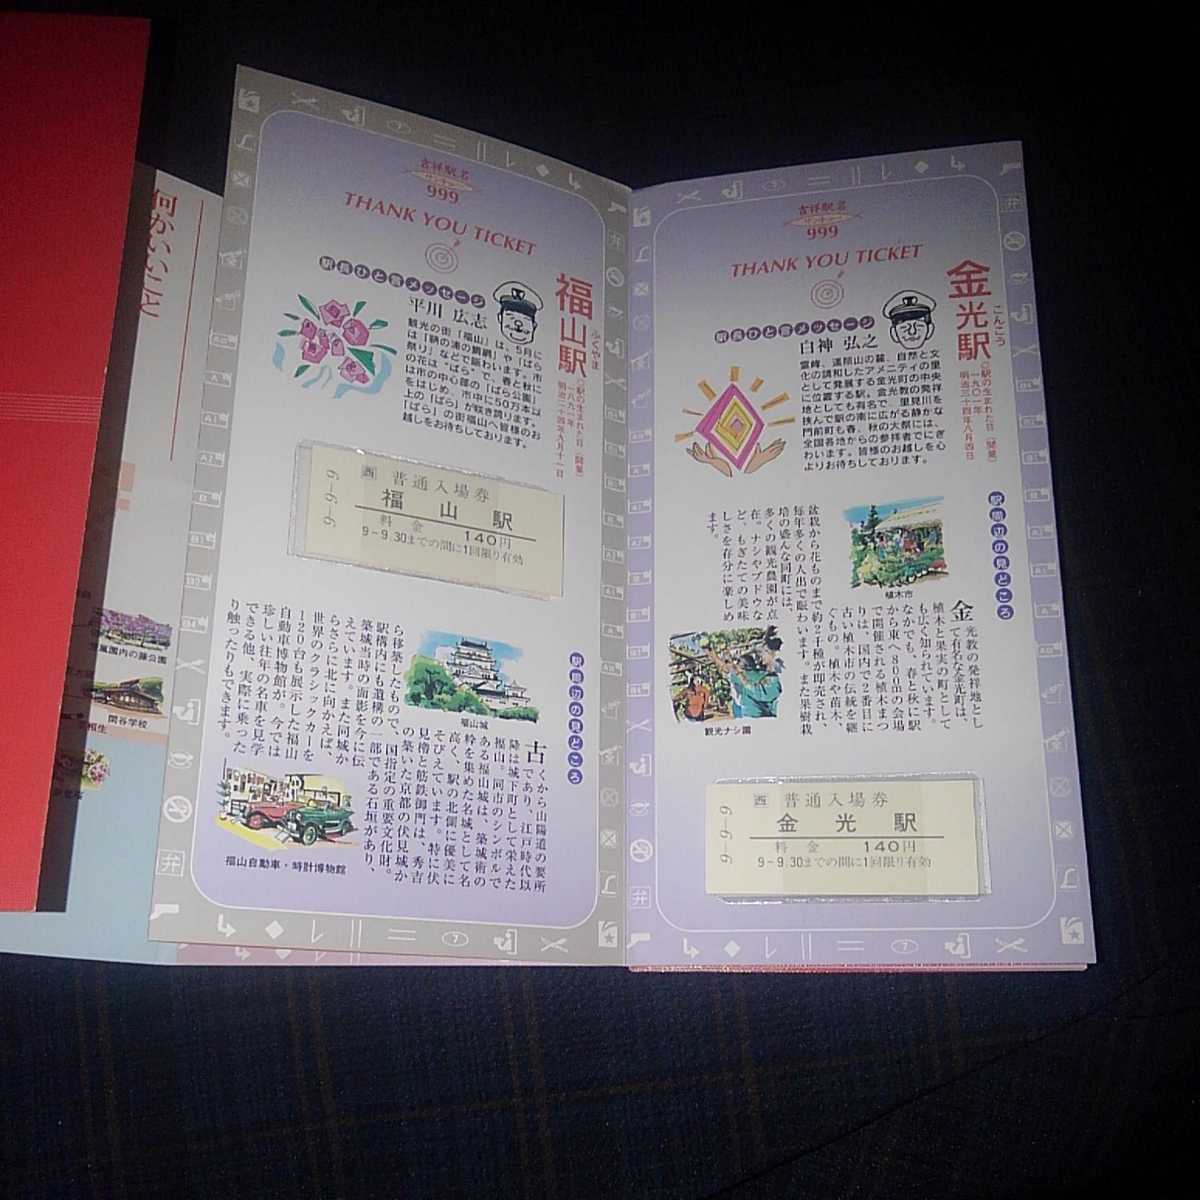 何かいいこと
閑谷学校
吉祥駅名
サンキュー
999
THANK YOU TICKET
駅長ひと言メッセージ
平川 広志
福山駅
ふくやま
〈駅の生まれた日(開業)〉
一八九一年
明治二十四年九月十一日
観光の街「福山」は、5月に
は「鞆の浦の鯛網」や「ばら
祭り」などで賑わいます。秋に
の花は“ばら”で、春と秋に
は市の中心部の「ばら公園」
をはじめ、市中に50万本以
上の「ばら」が咲き誇ります。
「ばら」の街福山へ皆様のお
越しをお待ちしております。
9-9-9
西 普通入場券
福山駅
料金 140円
9-9.30までの間に1回限り有効
駅周辺の見どころ
古くから山陽道の要所
であり、江戸時代以
降は城下町として栄えた
福山。同市のシンボルで
ある福山城は、築城術の
粋を集めた名城として名
高く、駅の北側に優美に
そびえています。特に伏
見櫓と筋鉄御門は、秀吉
の築いた京都の伏見城か
ら移築したもので、国指定の重要文化財。
駅構内にも遺構の一部である石垣があり、
築城当時の面影を今に伝
えています。また同城か
らさらに北に向かえば、
世界のクラシックカーを
120台も展示した福山
自動車博物館が。今では
珍しい往年の名車を見学
できる他、実際に乗った
り触ったりもできます。
福山城
福山自動車・時計博物館
吉祥駅名
サンキュー
999
THANK YOU TICKET
駅長ひと言メッセージ
白神 弘之
金光駅
こんこう
〈駅の生まれた日(開業)〉
一九〇一年
明治三十四年八月四日
霊峰、遥照山の麓、自然と文
化の調和したアメニティの里
として発展する金光町の中央
に位置する駅。金光教の発祥
地としても有名で、里見川を
挟んで駅の南に広がる静かな
門前町も春、秋の大祭には、
全国各地からの参拝者でにぎ
わいます。皆様のお越しを心
よりお待ちしております。
駅周辺の見どころ
植木市
金光教の発祥地とし
て有名な金光町は、
植木と果実の町として
も広く知られています。
なかでも、春と秋に駅
から東へ800mの会場
で開催される植木まつ
りは、国内で2番目に
古い植木市の伝統を継
ぐもの。植木や苗木、
盆栽から花ものまで約2千種が即売され、
毎年多くの人出で賑わいます。また果樹栽
培の盛んな同町には、
多くの観光農園が点
在。ナシやブドウな
ど、もぎたての美味
しさを存分に楽しめ
ます。
観光ナシ園
9-9-9
西 普通入場券
金光駅
料金 140円
9-9.30までの間に1回限り有効